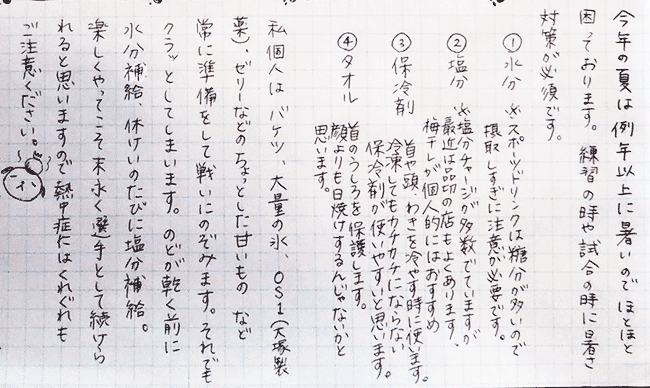 今年の夏は例年以上に暑いのでほとほと
困っております。練習の時や試合の時に暑さ
対策が必須です。
①水分 ※スポーツドリンクは糖分が多いので
摂取しすぎに注意が必要です。
②塩分 ※塩分チャージが多数でていますが
最近は品切の店もよくあります、
梅干しが個人的にはおすすめ
③保冷剤 首や頭、わきを冷やす時に使います。
冷凍してもカチカチにならない
保冷剤が使いやすいと思います。
④タオル 首のうしろを保護します。
顔よりも日焼けするんじゃないかと
思います。
私個人はバケツ、大量の氷、OS1(大塚製
薬)、ゼリーなどのちょっとした甘いもの など
常に準備をして戦いにのぞみます。それでも
クラッとしてしまいます。のどが乾く前に
水分補給、休けいのたびに塩分補給。
楽しくやってこそ末永く選手として続けら
れると思いますので熱中症にはくれぐれも
ご注意ください。